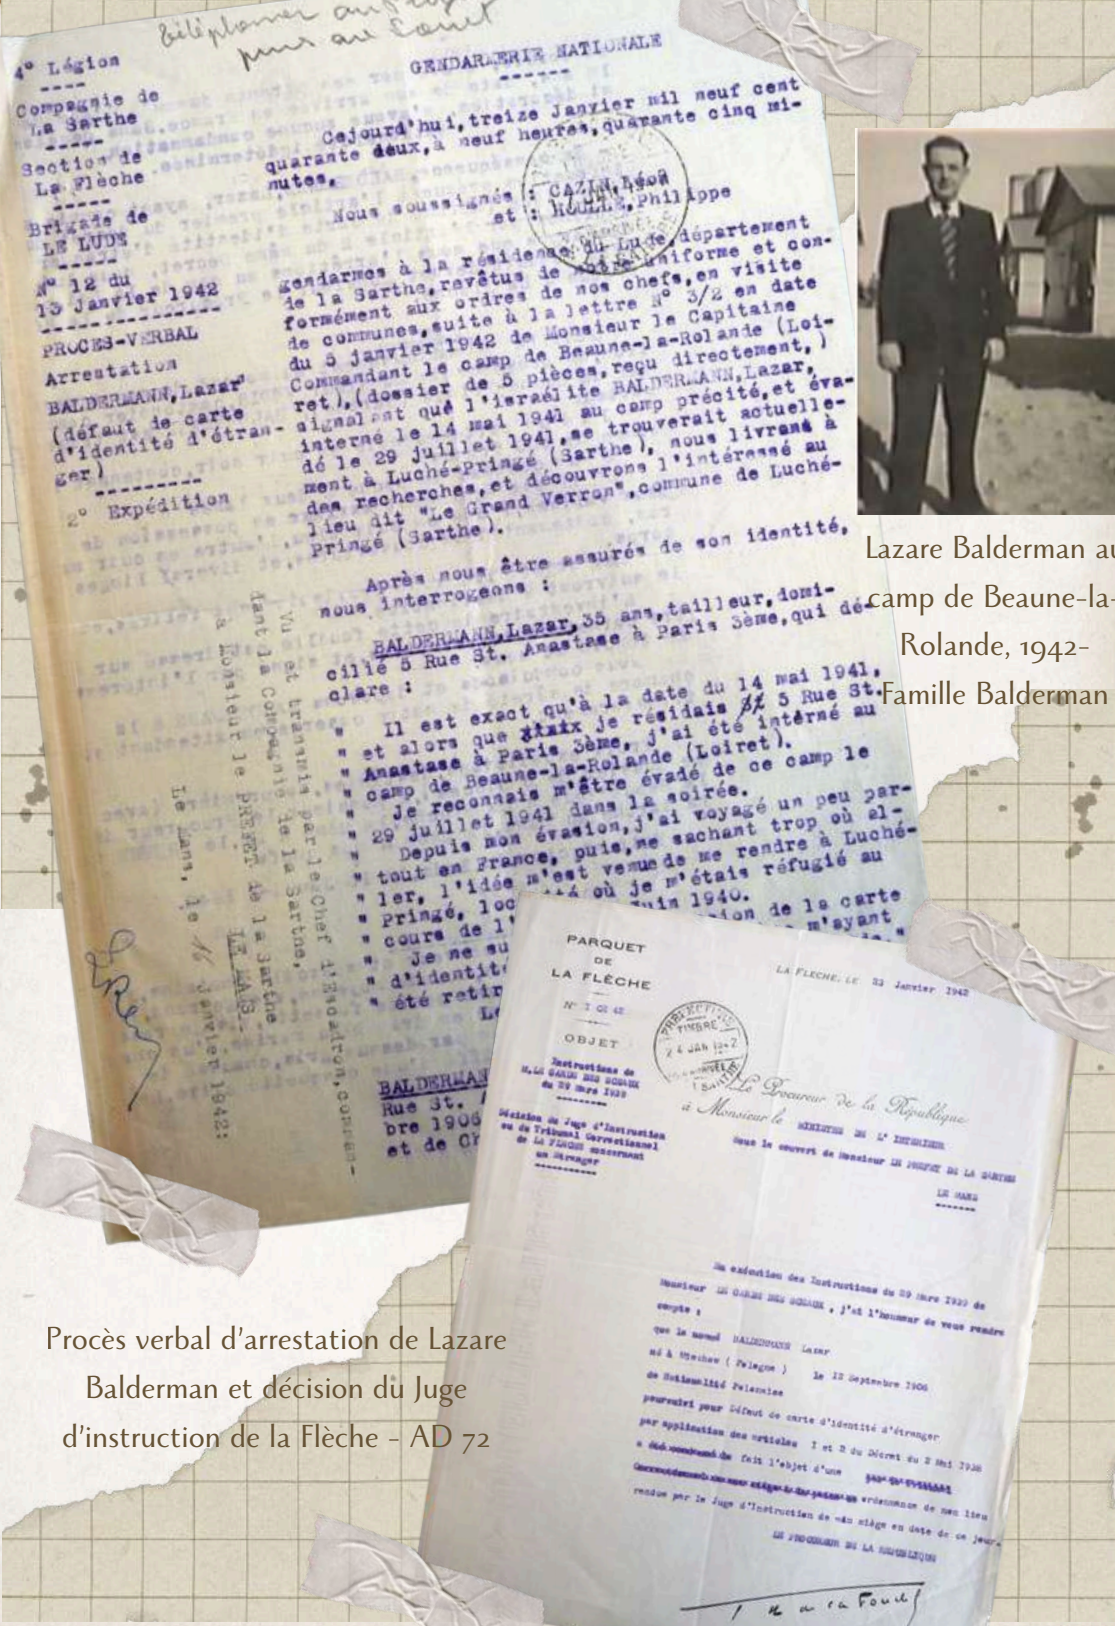 téléphoner au
puis au
4° Légion
Compagnie de
La Sarthe
Section de
La Flèche
Brigade de
LE LUDE
N° 12 du
13 Janvier 1942
PROCES-VERBAL
Arrestation
BALDERMANN,Lazar
(défaut de carte
d'identité d'étran-
ger)
2° Expédition
GENDARMERIE NATIONALE
Cejourd'hui,treize Janvier mil neuf cent
quarante deux,à neuf heures,quarante cinq mi-
nutes.
Nous soussignés : CAZIN,Léon
et : HOULLE,Philippe
gendarmes à la résidence du Lude,département
de la Sarthe,revêtus de notre uniforme et con-
formément aux ordres de nos chefs,en visite
de communes,suite à la lettre N° 3/2 en date
du 5 janvier 1942 de Monsieur le Capitaine
Commandant le camp de Beaune-la-Rolande (Loi-
ret),(dossier de 5 pièces,reçu directement,)
signalant que l'israélite BALDERMANN,Lazar,
interné le 14 mai 1941 au camp précité,et éva-
dé le 29 juillet 1941,se trouverait actuelle-
ment à Luché-Pringé (Sarthe), nous livrons à
des recherches,et découvrons l'intéressé au
lieu dit "Le Grand Verron",commune de Luché-
Pringé (Sarthe).
Après nous être assurés de son identité,
nous interrogeons :
BALDERMANN,Lazar,35 ans,tailleur,domi-
cilié 5 Rue St. Anastase à Paris 3ème,qui dé-
clare :
" Il est exact qu'à la date du 14 mai 1941,
" et alors que je résidais 5 Rue St.
" Anastase à Paris 3ème, j'ai été interné au
" camp de Beaune-la-Rolande (Loiret).
" Je reconnais m'être évadé de ce camp le
" 29 juillet 1941 dans la soirée.
" Depuis mon évasion,j'ai voyagé un peu par-
" tout en France, puis,ne sachant trop où al-
" ler, l'idée m'est venue de me rendre à Luché-
" Pringé, loc té où je m'étais réfugié au
" cours de l' Juin 1940.
" Je ne su sion de la carte
" d'identité m'ayant
" été retir
Le
BALDERMAN
Rue St. A
bre 1906
et de Ch
Vu et transmis par le Chef d'Escadron,comman-
dant la Compagnie de la Sarthe,
à Monsieur le PREFET de la Sarthe
LE MANS
Le Mans, le 16 Janvier 1942:
Lazare Balderman au
camp de Beaune-la-
Rolande, 1942-
Famille Balderman
PARQUET
DE
LA FLÈCHE
N°
OBJET
Instructions de
M.LE GARDE DES SCEAUX
du 29 mars 1939
Décision du Juge d'Instruction
ou du Tribunal Correctionnel
de LA FLECHE concernant
un Etranger
LA FLECHE, LE 23 Janvier 1942
PREFECTURE
TIMBRE
24 JAN 1942
SARTHE
Le Procureur de la République
à Monsieur le MINISTRE DE L' INTERIEUR
Sous le couvert de Monsieur LE PREFET DE LA SARTHE
LE MANS
En exécution des Instructions du 29 mars 1939 de
Monsieur LE GARDE DES SCEAUX , j'ai l'honneur de vous rendre
compte :
que le nommé BALDERMANN Lazar
né à ( Pologne ) le 12 Septembre 1906
de Nationalité Polonaise
poursuivi pour Défaut de carte d'identité d'étranger
par application des articles 1 et 2 du Décret du 2 Mai 1938
a été condamné fait l'objet d'une
ordonnance de non lieu
rendue par le Juge d'Instruction de mon siège en date de ce jour.
LE PROCUREUR DE LA REPUBLIQUE
Procès verbal d'arrestation de Lazare
Balderman et décision du Juge
d'instruction de la Flèche - AD 72